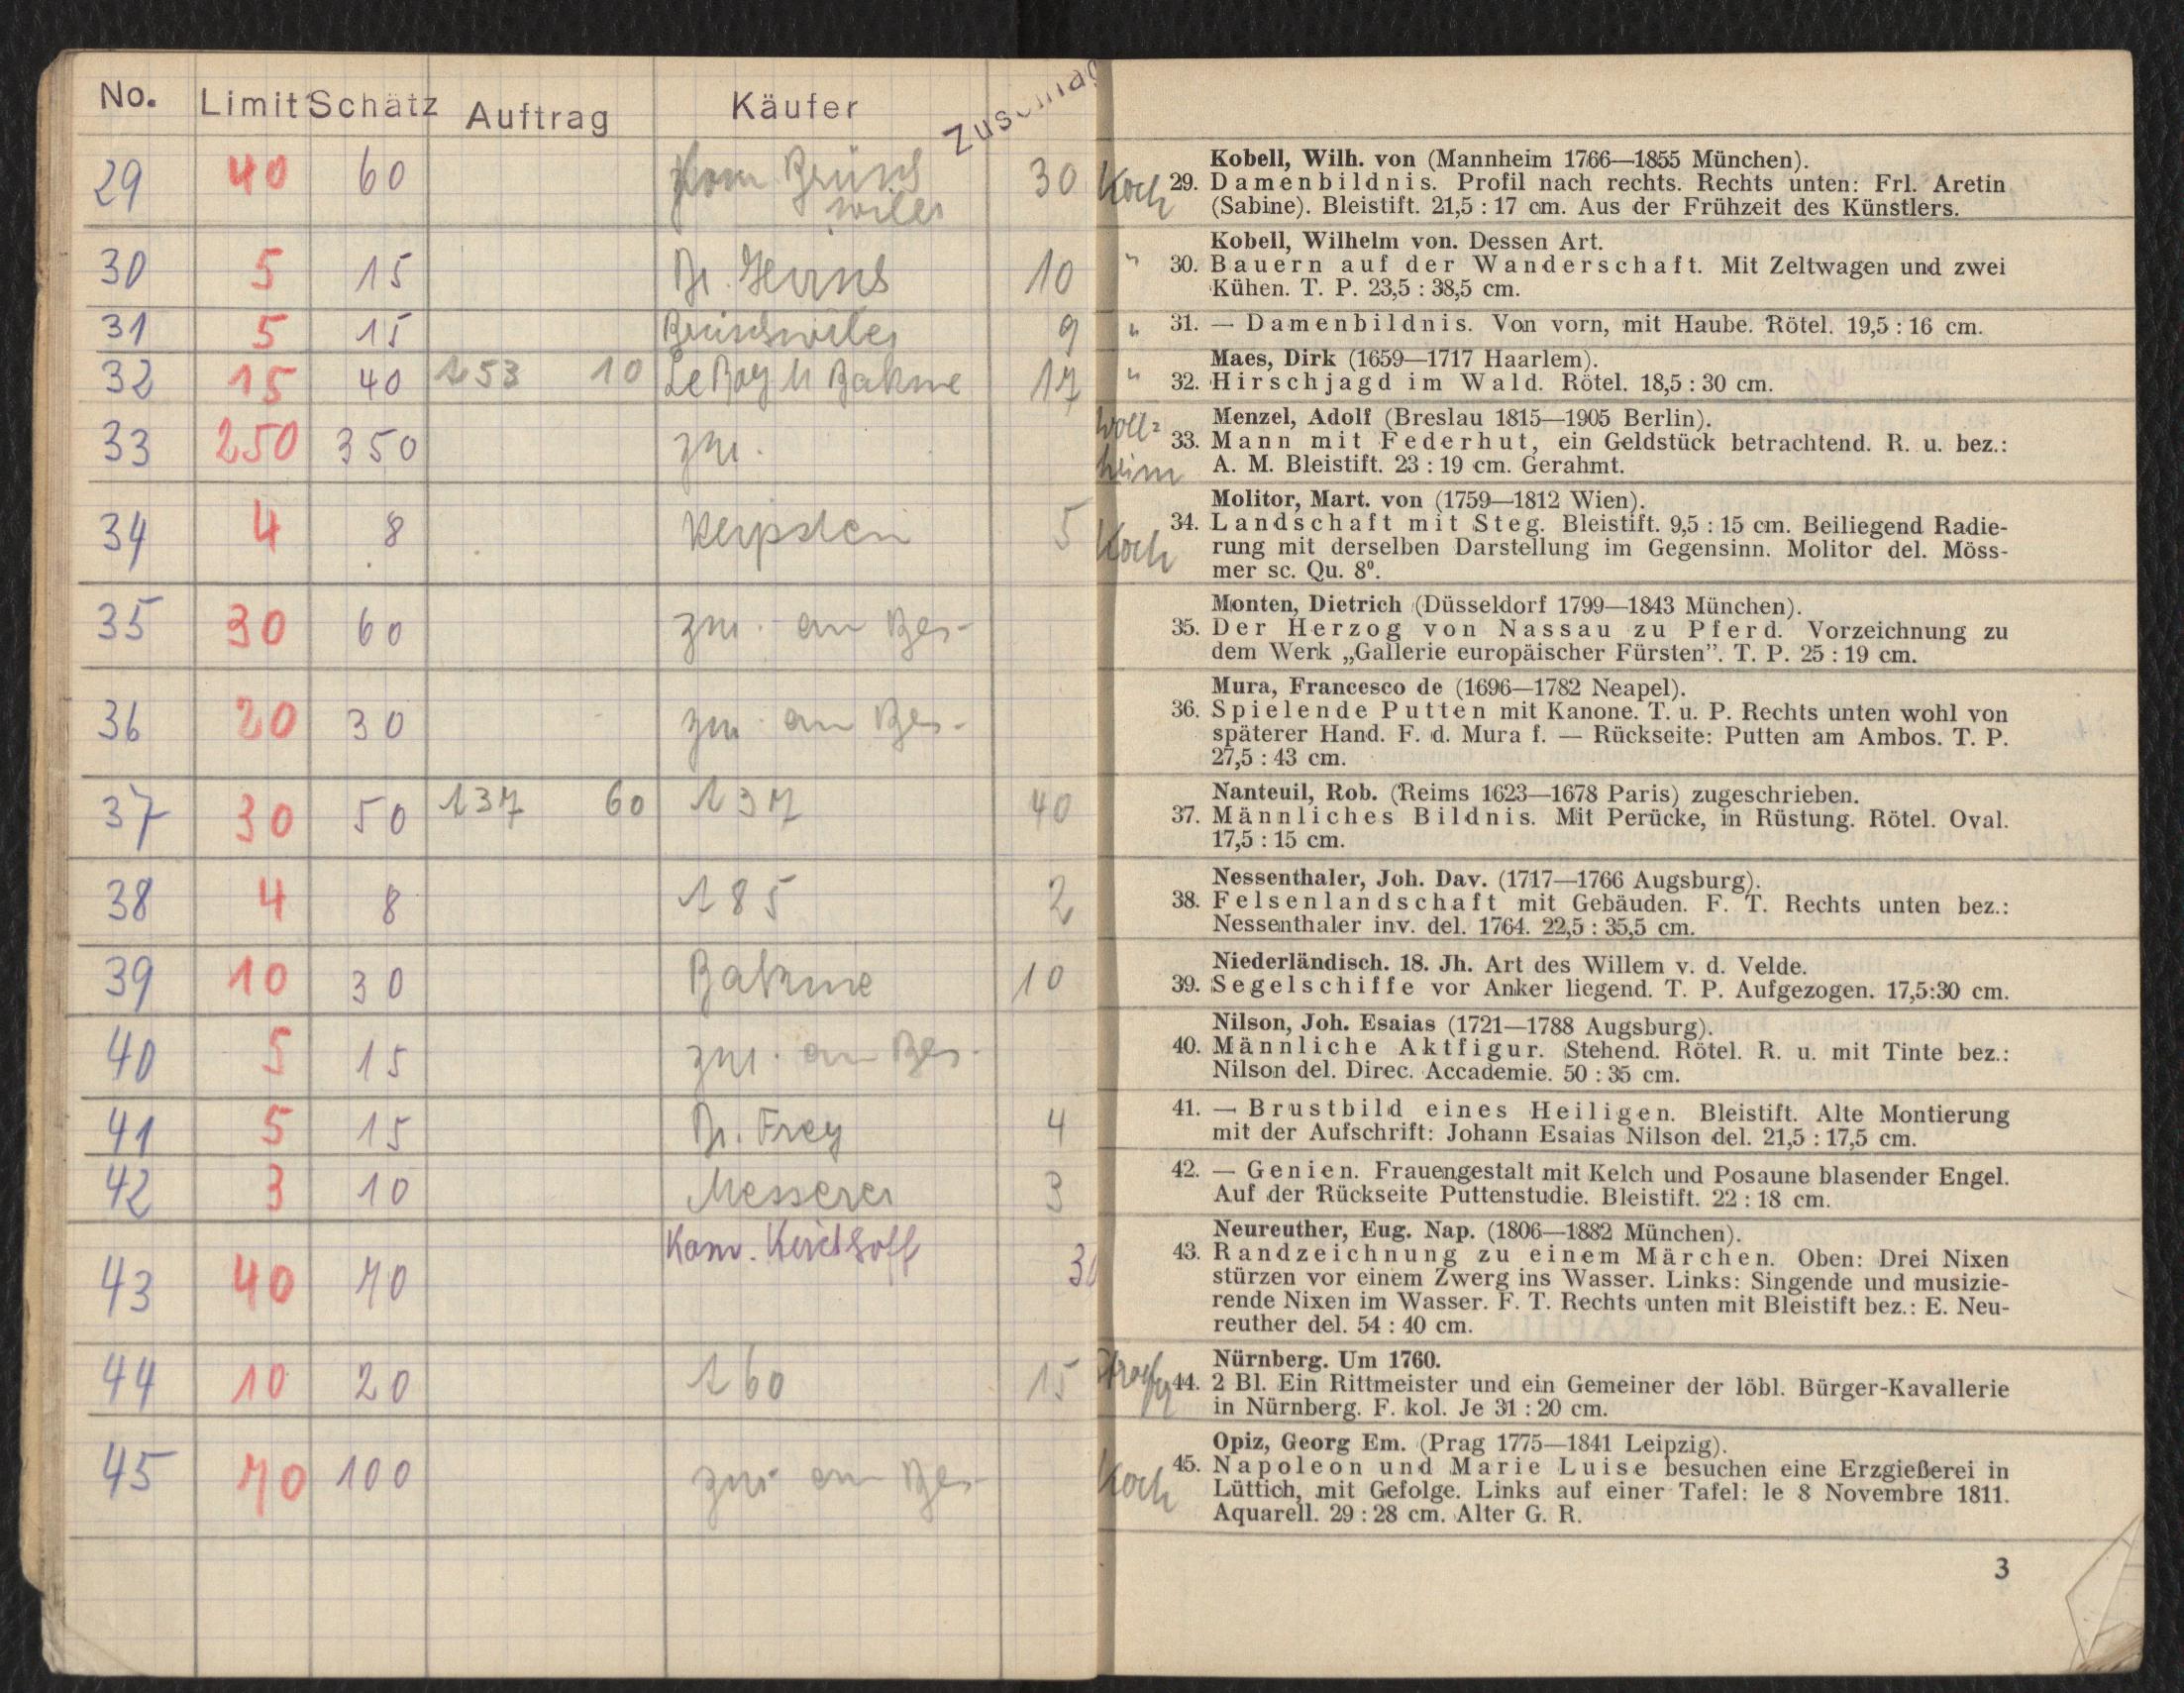 No. Limit Schätz Auftrag Käufer Zuschlag
29 40 60 30
30 5 15 10
31 5 15 9
32 15 40 153 10 17
33 250 350 zur.
34 4 8 5
35 30 60 zur. an Bes-
36 20 30 zur. an Bes-
37 30 50 137 60 137 40
38 4 8 185 2
39 10 30 10
40 5 15 zur. an Bes-
41 5 15 Dr. Frey 4
42 3 10 Messerer 3
43 40 70 Kirchhoff
44 10 20 160 15
45 70 100 zur an Bes-
Kobell, Wilh. von (Mannheim 1766—1855 München).
Koch 29. Damenbildnis. Profil nach rechts. Rechts unten: Frl. Aretin
(Sabine). Bleistift. 21,5 : 17 cm. Aus der Frühzeit des Künstlers.
Kobell, Wilhelm von. Dessen Art.
" 30. Bauern auf der Wanderschaft. Mit Zeltwagen und zwei
Kühen. T. P. 23,5 : 38,5 cm.
" 31. — Damenbildnis. Von vorn, mit Haube. Rötel. 19,5 : 16 cm.
Maes, Dirk (1659—1717 Haarlem).
" 32. Hirschjagd im Wald. Rötel. 18,5 : 30 cm.
Woll= Menzel, Adolf (Breslau 1815—1905 Berlin).
33. Mann mit Federhut, ein Geldstück betrachtend. R. u. bez.:
heim A. M. Bleistift. 23 : 19 cm. Gerahmt.
Molitor, Mart. von (1759—1812 Wien).
34. Landschaft mit Steg. Bleistift. 9,5 : 15 cm. Beiliegend Radie-
Koch rung mit derselben Darstellung im Gegensinn. Molitor del. Möss-
mer sc. Qu. 8⁰.
Monten, Dietrich (Düsseldorf 1799—1843 München).
35. Der Herzog von Nassau zu Pferd. Vorzeichnung zu
dem Werk „Gallerie europäischer Fürsten”. T. P. 25 : 19 cm.
Mura, Francesco de (1696—1782 Neapel).
36. Spielende Putten mit Kanone. T. u. P. Rechts unten wohl von
späterer Hand. F. d. Mura f. — Rückseite: Putten am Ambos. T. P.
27,5 : 43 cm.
Nanteuil, Rob. (Reims 1623—1678 Paris) zugeschrieben.
37. Männliches Bildnis. Mit Perücke, in Rüstung. Rötel. Oval.
17,5 : 15 cm.
Nessenthaler, Joh. Dav. (1717—1766 Augsburg).
38. Felsenlandschaft mit Gebäuden. F. T. Rechts unten bez.:
Nessenthaler inv. del. 1764. 22,5 : 35,5 cm.
Niederländisch. 18. Jh. Art des Willem v. d. Velde.
39. Segelschiffe vor Anker liegend. T. P. Aufgezogen. 17,5:30 cm.
Nilson, Joh. Esaias (1721—1788 Augsburg).
40. Männliche Aktfigur. Stehend. Rötel. R. u. mit Tinte bez.:
Nilson del. Direc. Accademie. 50 : 35 cm.
41. — Brustbild eines Heiligen. Bleistift. Alte Montierung
mit der Aufschrift: Johann Esaias Nilson del. 21,5 : 17,5 cm.
42. — Genien. Frauengestalt mit Kelch und Posaune blasender Engel.
Auf der Rückseite Puttenstudie. Bleistift. 22 : 18 cm.
Neureuther, Eug. Nap. (1806—1882 München).
43. Randzeichnung zu einem Märchen. Oben: Drei Nixen
stürzen vor einem Zwerg ins Wasser. Links: Singende und musizie-
rende Nixen im Wasser. F. T. Rechts unten mit Bleistift bez.: E. Neu-
reuther del. 54 : 40 cm.
Nürnberg. Um 1760.
44. 2 Bl. Ein Rittmeister und ein Gemeiner der löbl. Bürger-Kavallerie
in Nürnberg. F. kol. Je 31 : 20 cm.
Opiz, Georg Em. (Prag 1775—1841 Leipzig).
Koch 45. Napoleon und Marie Luise besuchen eine Erzgießerei in
Lüttich, mit Gefolge. Links auf einer Tafel: le 8 Novembre 1811.
Aquarell. 29 : 28 cm. Alter G. R.
3